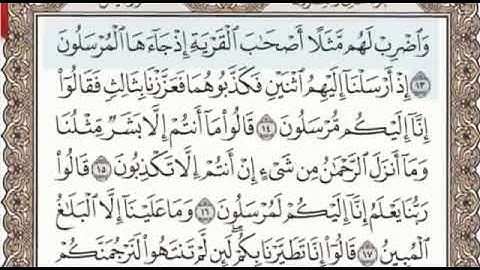 وَٱضْرِبْ لَهُم مَّثَلًا أَصْحَٰبَ ٱلْقَرْيَةِ إِذْ جَآءَهَا ٱلْمُرْسَلُونَ
١٣ إِذْ أَرْسَلْنَآ إِلَيْهِمُ ٱثْنَيْنِ فَكَذَّبُوهُمَا فَعَزَّزْنَا بِثَالِثٍ فَقَالُوٓا۟
إِنَّآ إِلَيْكُم مُّرْسَلُونَ ١٤ قَالُوا۟ مَآ أَنتُمْ إِلَّا بَشَرٌ مِّثْلُنَا
وَمَآ أَنزَلَ ٱلرَّحْمَٰنُ مِن شَىْءٍ إِنْ أَنتُمْ إِلَّا تَكْذِبُونَ ١٥ قَالُوا۟
رَبُّنَا يَعْلَمُ إِنَّآ إِلَيْكُمْ لَمُرْسَلُونَ ١٦ وَمَا عَلَيْنَآ إِلَّا ٱلْبَلَٰغُ
ٱلْمُبِينُ ١٧ قَالُوٓا۟ إِنَّا تَطَيَّرْنَا بِكُمْ لَئِن لَّمْ تَنتَهُوا۟ لَنَرْجُمَنَّكُمْ